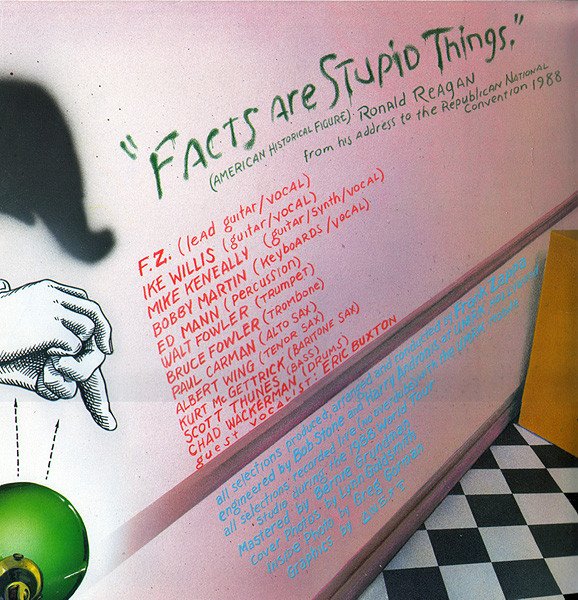 "FACTS ARE STUPID THINGS."
(AMERICAN HISTORICAL FIGURE) RONALD REAGAN
from his address to the REPUBLICAN NATIONAL
CONVENTION 1988
F.Z.: (lead guitar/VOCAL)
IKE WILLIS (guitar/VOCAL)
MIKE KENEALLY (guitar/synth/VOCAL)
BOBBY MARTIN (KEYBOARDS/VOCAL)
ED MANN (PERCUSSION)
WALT FOWLER (TRUMPET)
BRUCE FOWLER (TROMBONE)
PAUL CARMAN (ALTO SAX)
ALBERT WING (TENOR SAX)
KURT McGETTRICK (BARITONE SAX)
SCOTT THUNES (BASS)
CHAD WACKERMAN (DRUMS)
guest VOCALIST: ERIC BUXTON
all selections produced, arranged and conducted by Frank Zappa
engineered by Bob Stone and Harry Andronis at UMRK
all selections recorded live (no overdubs) with the UMRK
Studio during the 1988 World Tour
Mastered by Bernie Grundman
Cover Photos by Lynn Goldsmith
Inside Photo by Greg Gorman
Graphics by